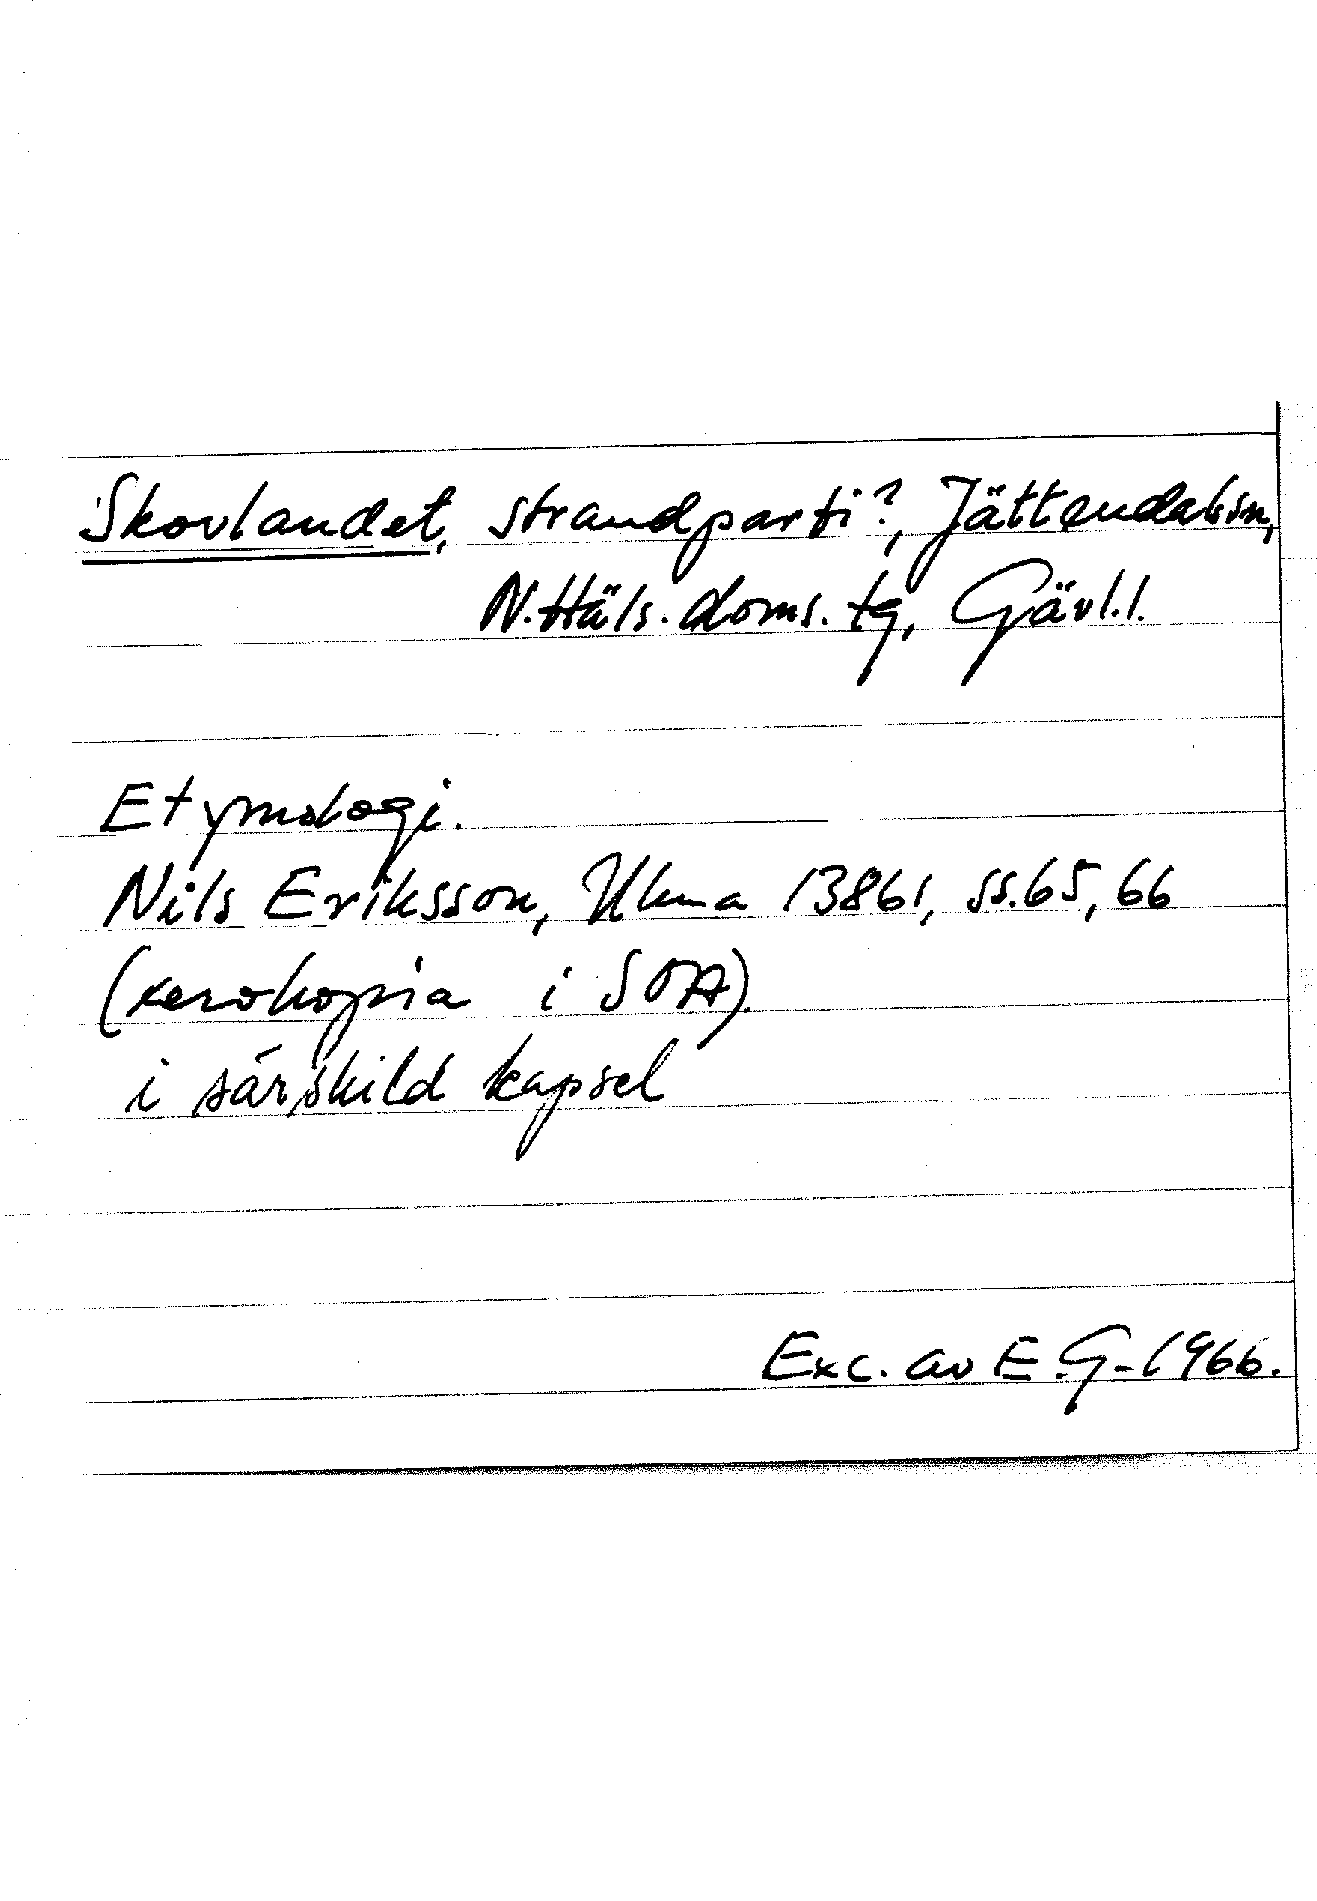 Skovlandet, strandparti?, Jättendals sn,
N. Häls. doms. tg, Gävl. l.
Etymologi.
Nils Eriksson, Ulma 13861, ss. 65, 66
(xerokopia i SOA).
i särskild kapsel
Exc. av E.G. 1966.